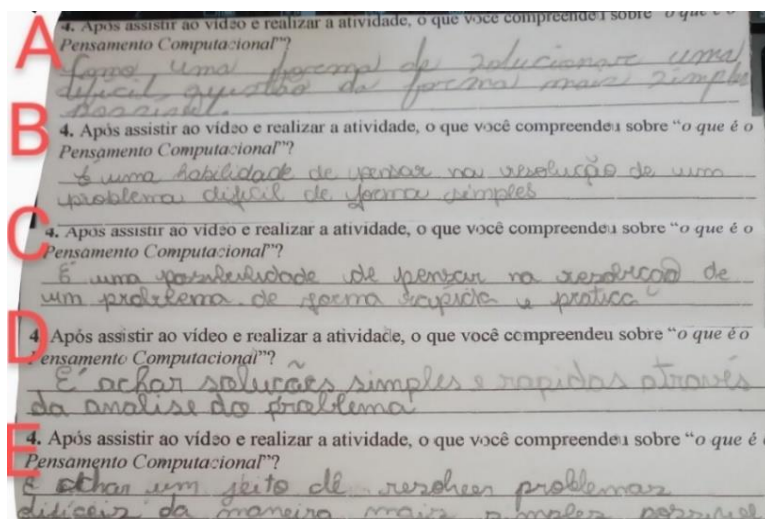 A
4. Após assistir ao vídeo e realizar a atividade, o que você compreendeu sobre "o que é o
Pensamento Computacional"?
Como uma forma de solucionar uma
dificil questão da forma mais simples
possivel.
B
4. Após assistir ao vídeo e realizar a atividade, o que você compreendeu sobre "o que é o
Pensamento Computacional"?
É uma habilidade de pensar na resolução de um
problema dificil de forma simples
C
4. Após assistir ao vídeo e realizar a atividade, o que você compreendeu sobre "o que é o
Pensamento Computacional"?
É uma possibilidade de pensar na resolução de
um problema de forma rapida e pratica
D
4 Após assistir ao vídeo e realizar a atividade, o que você compreendeu sobre "o que é o
Pensamento Computacional"?
É achar soluções simples e rapidas através
da analise do problema
E
4. Após assistir ao vídeo e realizar a atividade, o que você compreendeu sobre "o que é
Pensamento Computacional"?
É achar um jeito de resolver problemas
dificeis da maneira mais simples possivel